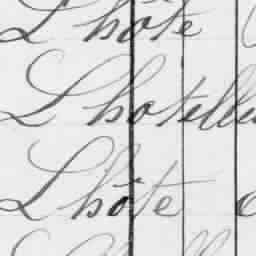 L'hôte
Lhotellie
Lhôte